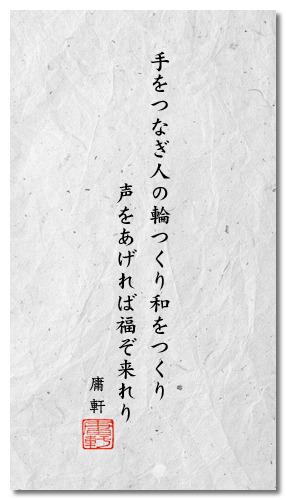 手をつなぎ人の輪つくり和をつくり
声をあげれば福ぞ来れり
庸軒
庸軒